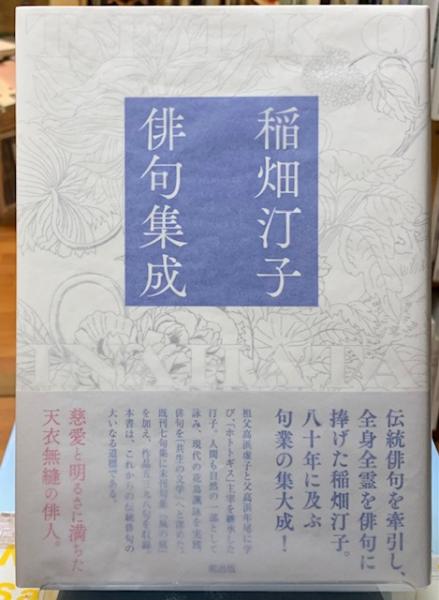 INEKO
稲畑汀子
俳句集成
INAHATA
伝統俳句を牽引し、
全身全霊を俳句に
捧げた稲畑汀子。
八十年に及ぶ
句業の集大成!
祖父高浜虚子と父高浜年尾に学
び、「ホトトギス」主宰を継承した
汀子。人間も自然の一部として
詠み、現代の花鳥諷詠を実践、
俳句を「共生の文学」へと深めた。
既刊七句集に未刊句集『風の庭』
を加え、作品五一九八句を収録。
本書は、これからの伝統俳句の
大いなる道標である。
慈愛と明るさに満ちた
天衣無縫の俳人。